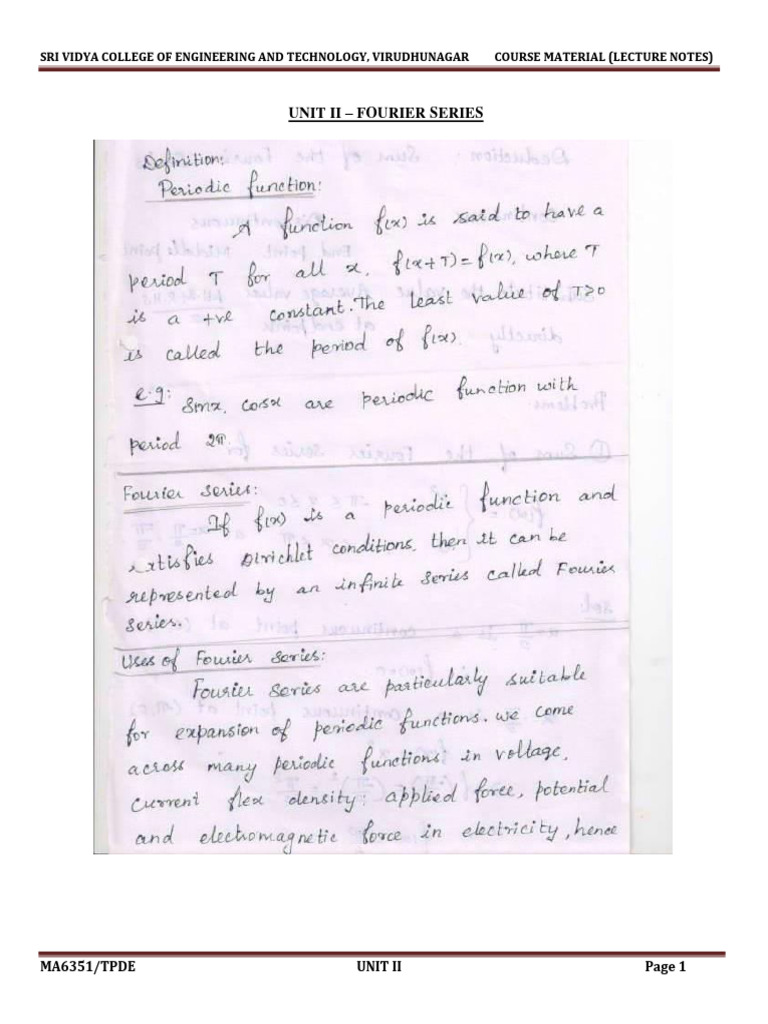 SRI VIDYA COLLEGE OF ENGINEERING AND TECHNOLOGY, VIRUDHUNAGAR COURSE MATERIAL (LECTURE NOTES)
UNIT II – FOURIER SERIES
Definition:
Periodic function:
A function f(x) is said to have a
period T for all x, f(x+T)=f(x), where T
is a +ve constant. The least value of T>0
is called the period of f(x).
e.g: sinx, cosx are periodic function with
period 2π.
Fourier series:
If f(x) is a periodic function and
satisfies Dirichlet conditions, then it can be
represented by an infinite series called Fourier
series.
Uses of Fourier series:
Fourier series are particularly suitable
for expansion of periodic functions. we come
across many periodic functions in voltage,
current flex density, applied force, potential
and electromagnetic force in electricity, hence
MA6351/TPDE UNIT II Page 1